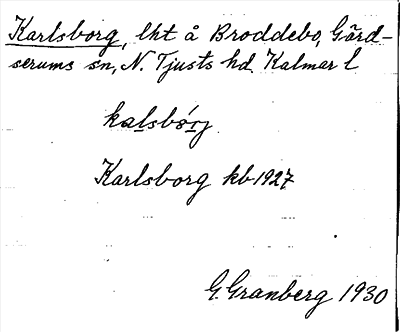 Karlsborg, lht å Broddebo, Gärd-
serums sn, N. Tjusts hd. Kalmar l
kalsbórj
Karlsborg kb 1927
G. Granberg 1930